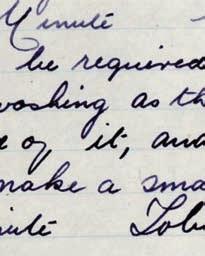 Minute
be required
washing as th
e of it, and
make a sma
nute Tobi